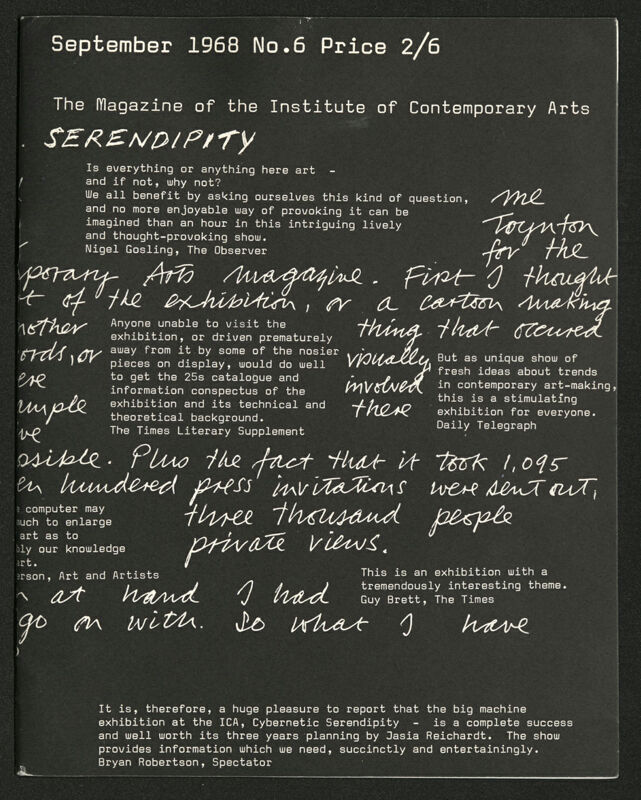 September 1968 No.6 Price 2/6
The Magazine of the Institute of Contemporary Arts
SERENDIPITY
Is everything or anything here art -
and if not, why not?
We all benefit by asking ourselves this kind of question,
and no more enjoyable way of provoking it can be
imagined than an hour in this intriguing lively
and thought-provoking show.
Nigel Gosling, The Observer
me
Toynton
for the
porary Arts magazine. First I thought
t of the exhibition, or a cartoon making
nother
thing that occured
ords, or
visually
ere
involved
imple
there
ve
Anyone unable to visit the
exhibition, or driven prematurely
away from it by some of the nosier
pieces on display, would do well
to get the 25s catalogue and
information conspectus of the
exhibition and its technical and
theoretical background.
The Times Literary Supplement
But as unique show of
fresh ideas about trends
in contemporary art-making,
this is a stimulating
exhibition for everyone.
Daily Telegraph
ossible. Plus the fact that it took 1,095
en hundered press invitations were sent out,
three thousand people
private views.
computer may
uch to enlarge
art as to
ly our knowledge
art.
erson, Art and Artists
This is an exhibition with a
tremendously interesting theme.
Guy Brett, The Times
at hand I had
go on with. So what I have
It is, therefore, a huge pleasure to report that the big machine
exhibition at the ICA, Cybernetic Serendipity - is a complete success
and well worth its three years planning by Jasia Reichardt. The show
provides information which we need, succinctly and entertainingly.
Bryan Robertson, Spectator